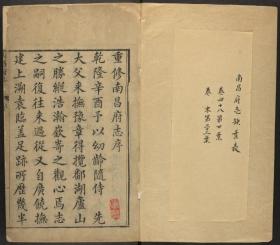 重修南昌府志序
乾隆辛酉予以幼齡隨侍　先
大父来撫豫章得攬鄱湖廬山
之勝縱浩瀚嶔嵜之觀心焉志
之嗣復往来過從又自廣饒撫
建上溯袁臨葢足跡所歷幾半
南昌府志缺葉表
卷四十八第廿葉